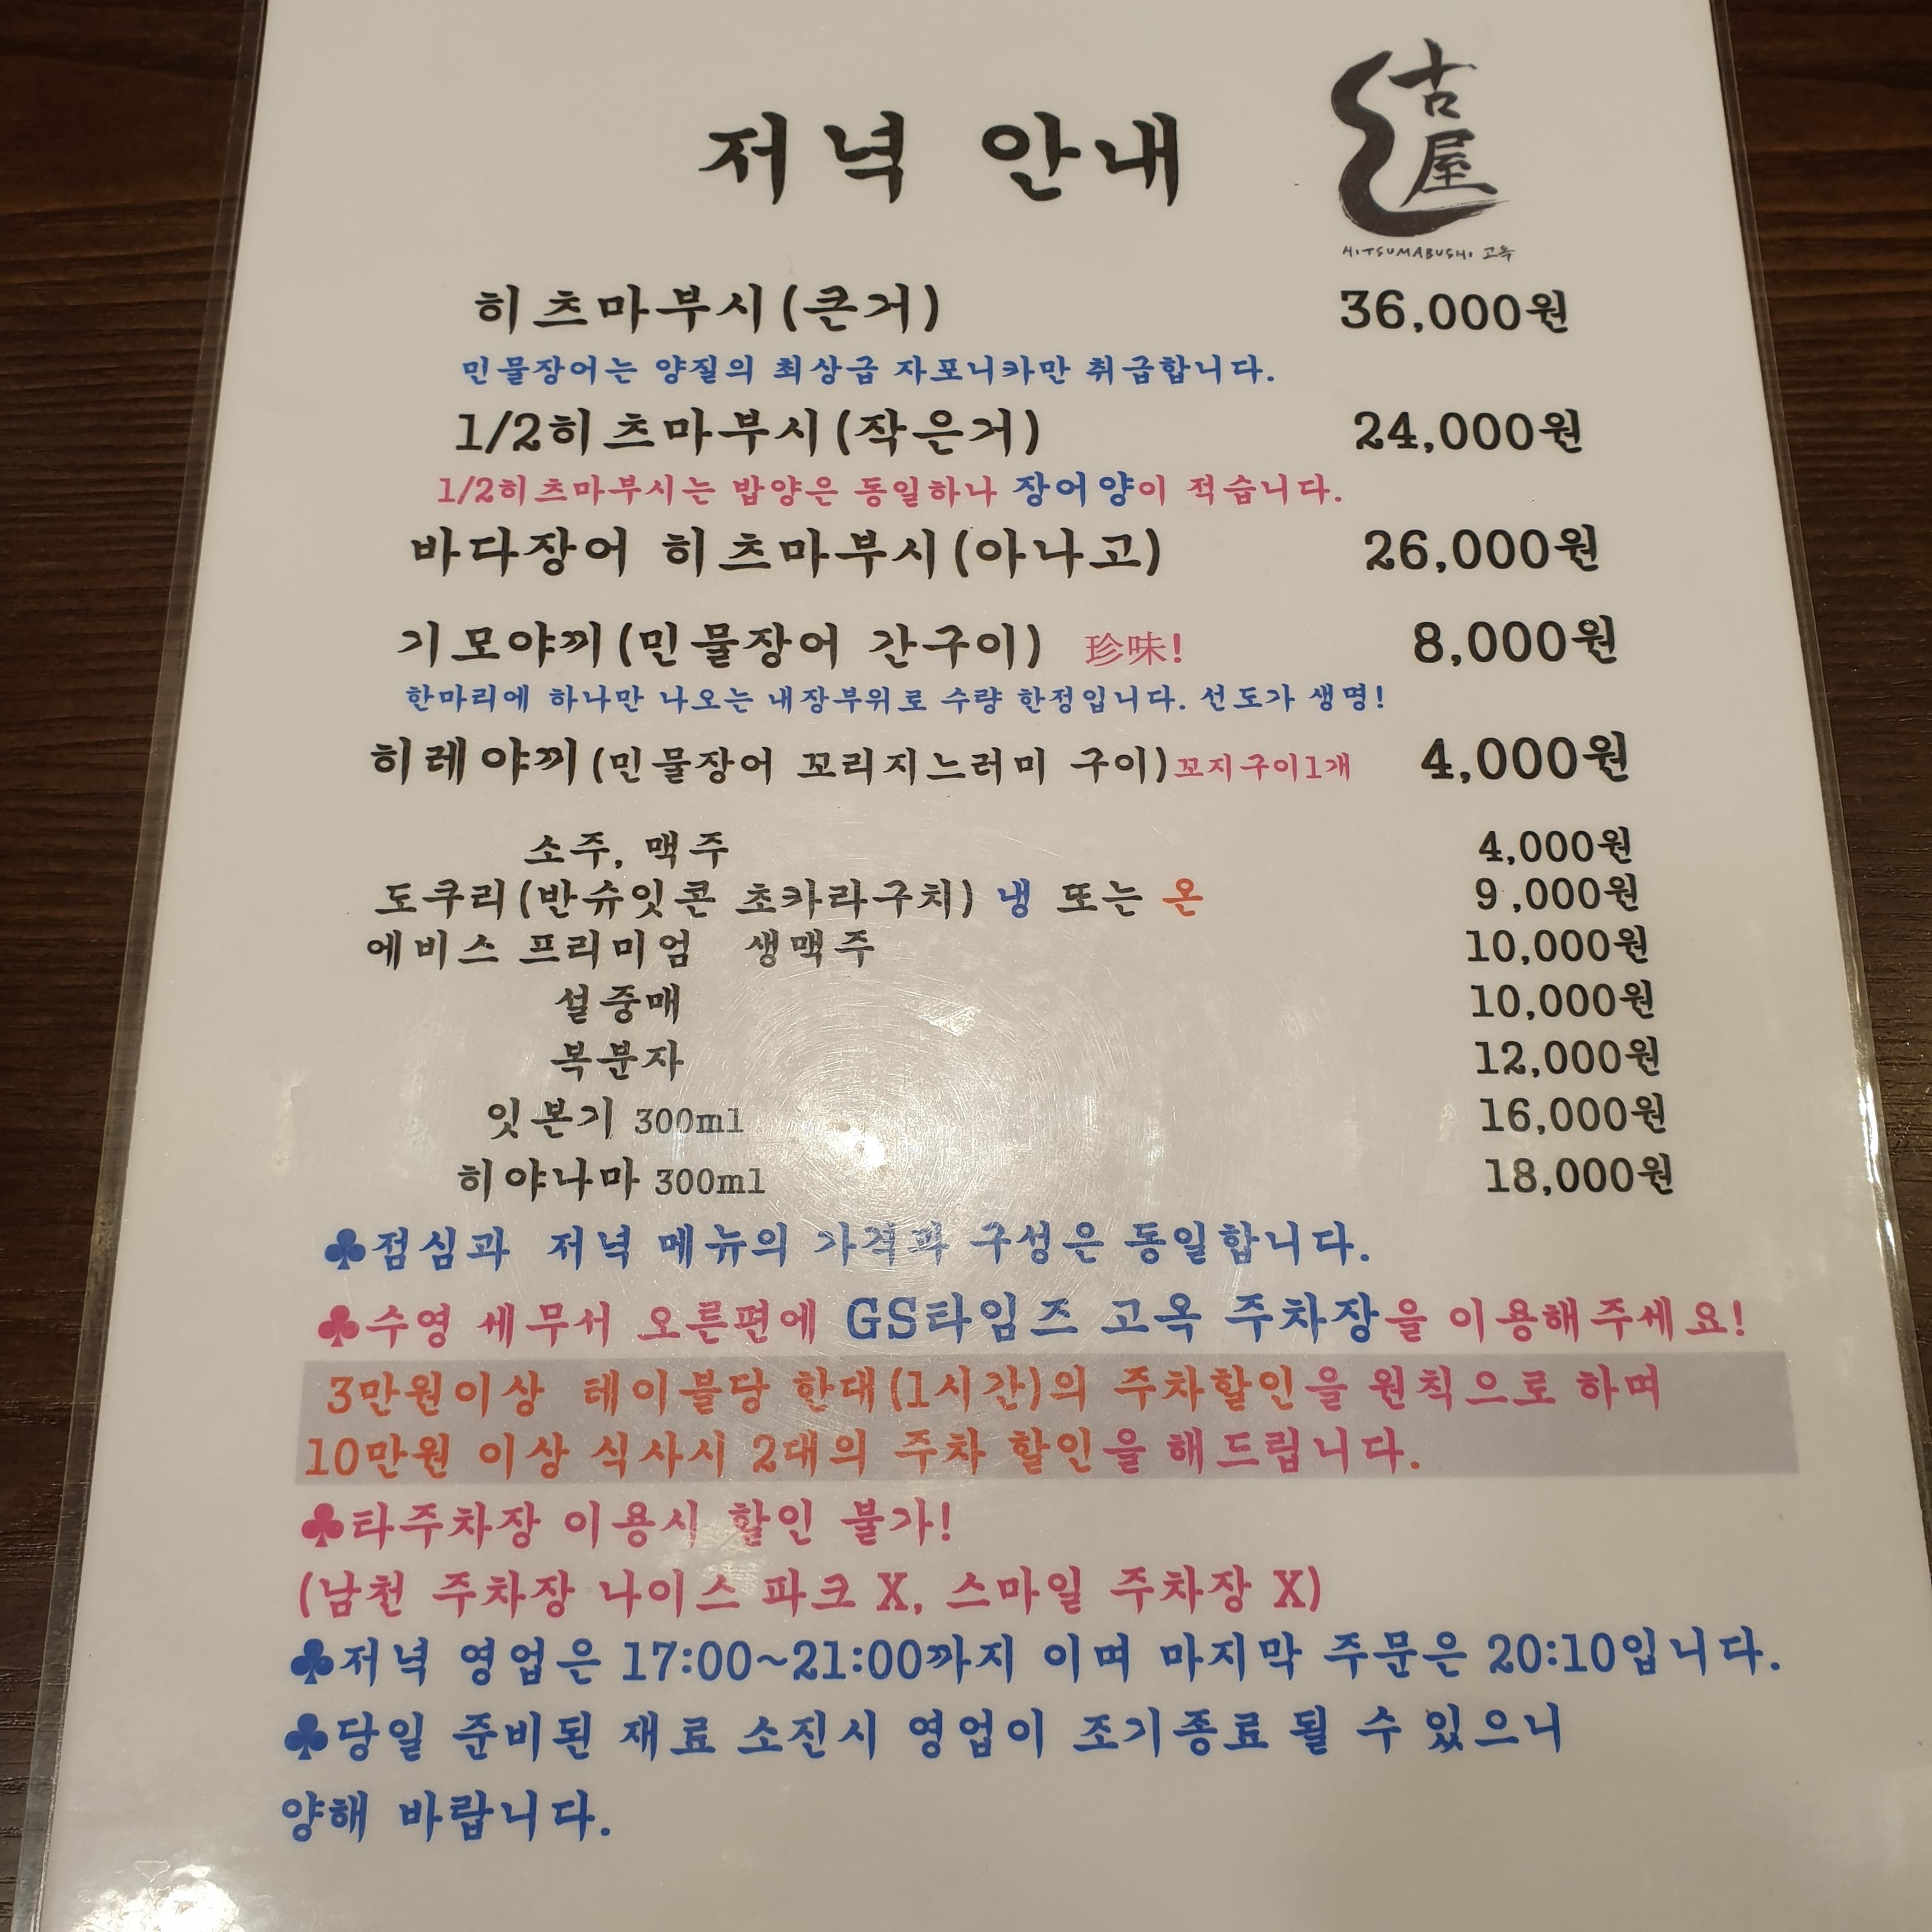 저녁 안내
古屋
HITSUMABUSHI 고옥
히츠마부시(큰거) 36,000원
민물장어는 양질의 최상급 자포니카만 취급합니다.
1/2히츠마부시(작은거) 24,000원
1/2히츠마부시는 밥양은 동일하나 장어양이 적습니다.
바다장어 히츠마부시(아나고) 26,000원
기모야끼(민물장어 간구이) 珍味! 8,000원
한마리에 하나만 나오는 내장부위로 수량 한정입니다. 선도가 생명!
히레야끼(민물장어 꼬리지느러미 구이)꼬지구이1개 4,000원
소주, 맥주 4,000원
도쿠리(반슈잇콘 초카라구치) 냉 또는 온 9,000원
에비스 프리미엄 생맥주 10,000원
설중매 10,000원
복분자 12,000원
잇본기 300ml 16,000원
히야나마 300ml 18,000원
♣점심과 저녁 메뉴의 가격과 구성은 동일합니다.
♣수영 세무서 오른편에 GS타임즈 고옥 주차장을 이용해주세요!
3만원이상 테이블당 한대(1시간)의 주차할인을 원칙으로 하며
10만원 이상 식사시 2대의 주차 할인을 해드립니다.
♣타주차장 이용시 할인 불가!
(남천 주차장 나이스 파크 X, 스마일 주차장 X)
♣저녁 영업은 17:00~21:00까지 이며 마지막 주문은 20:10입니다.
♣당일 준비된 재료 소진시 영업이 조기종료 될 수 있으니
양해 바랍니다.